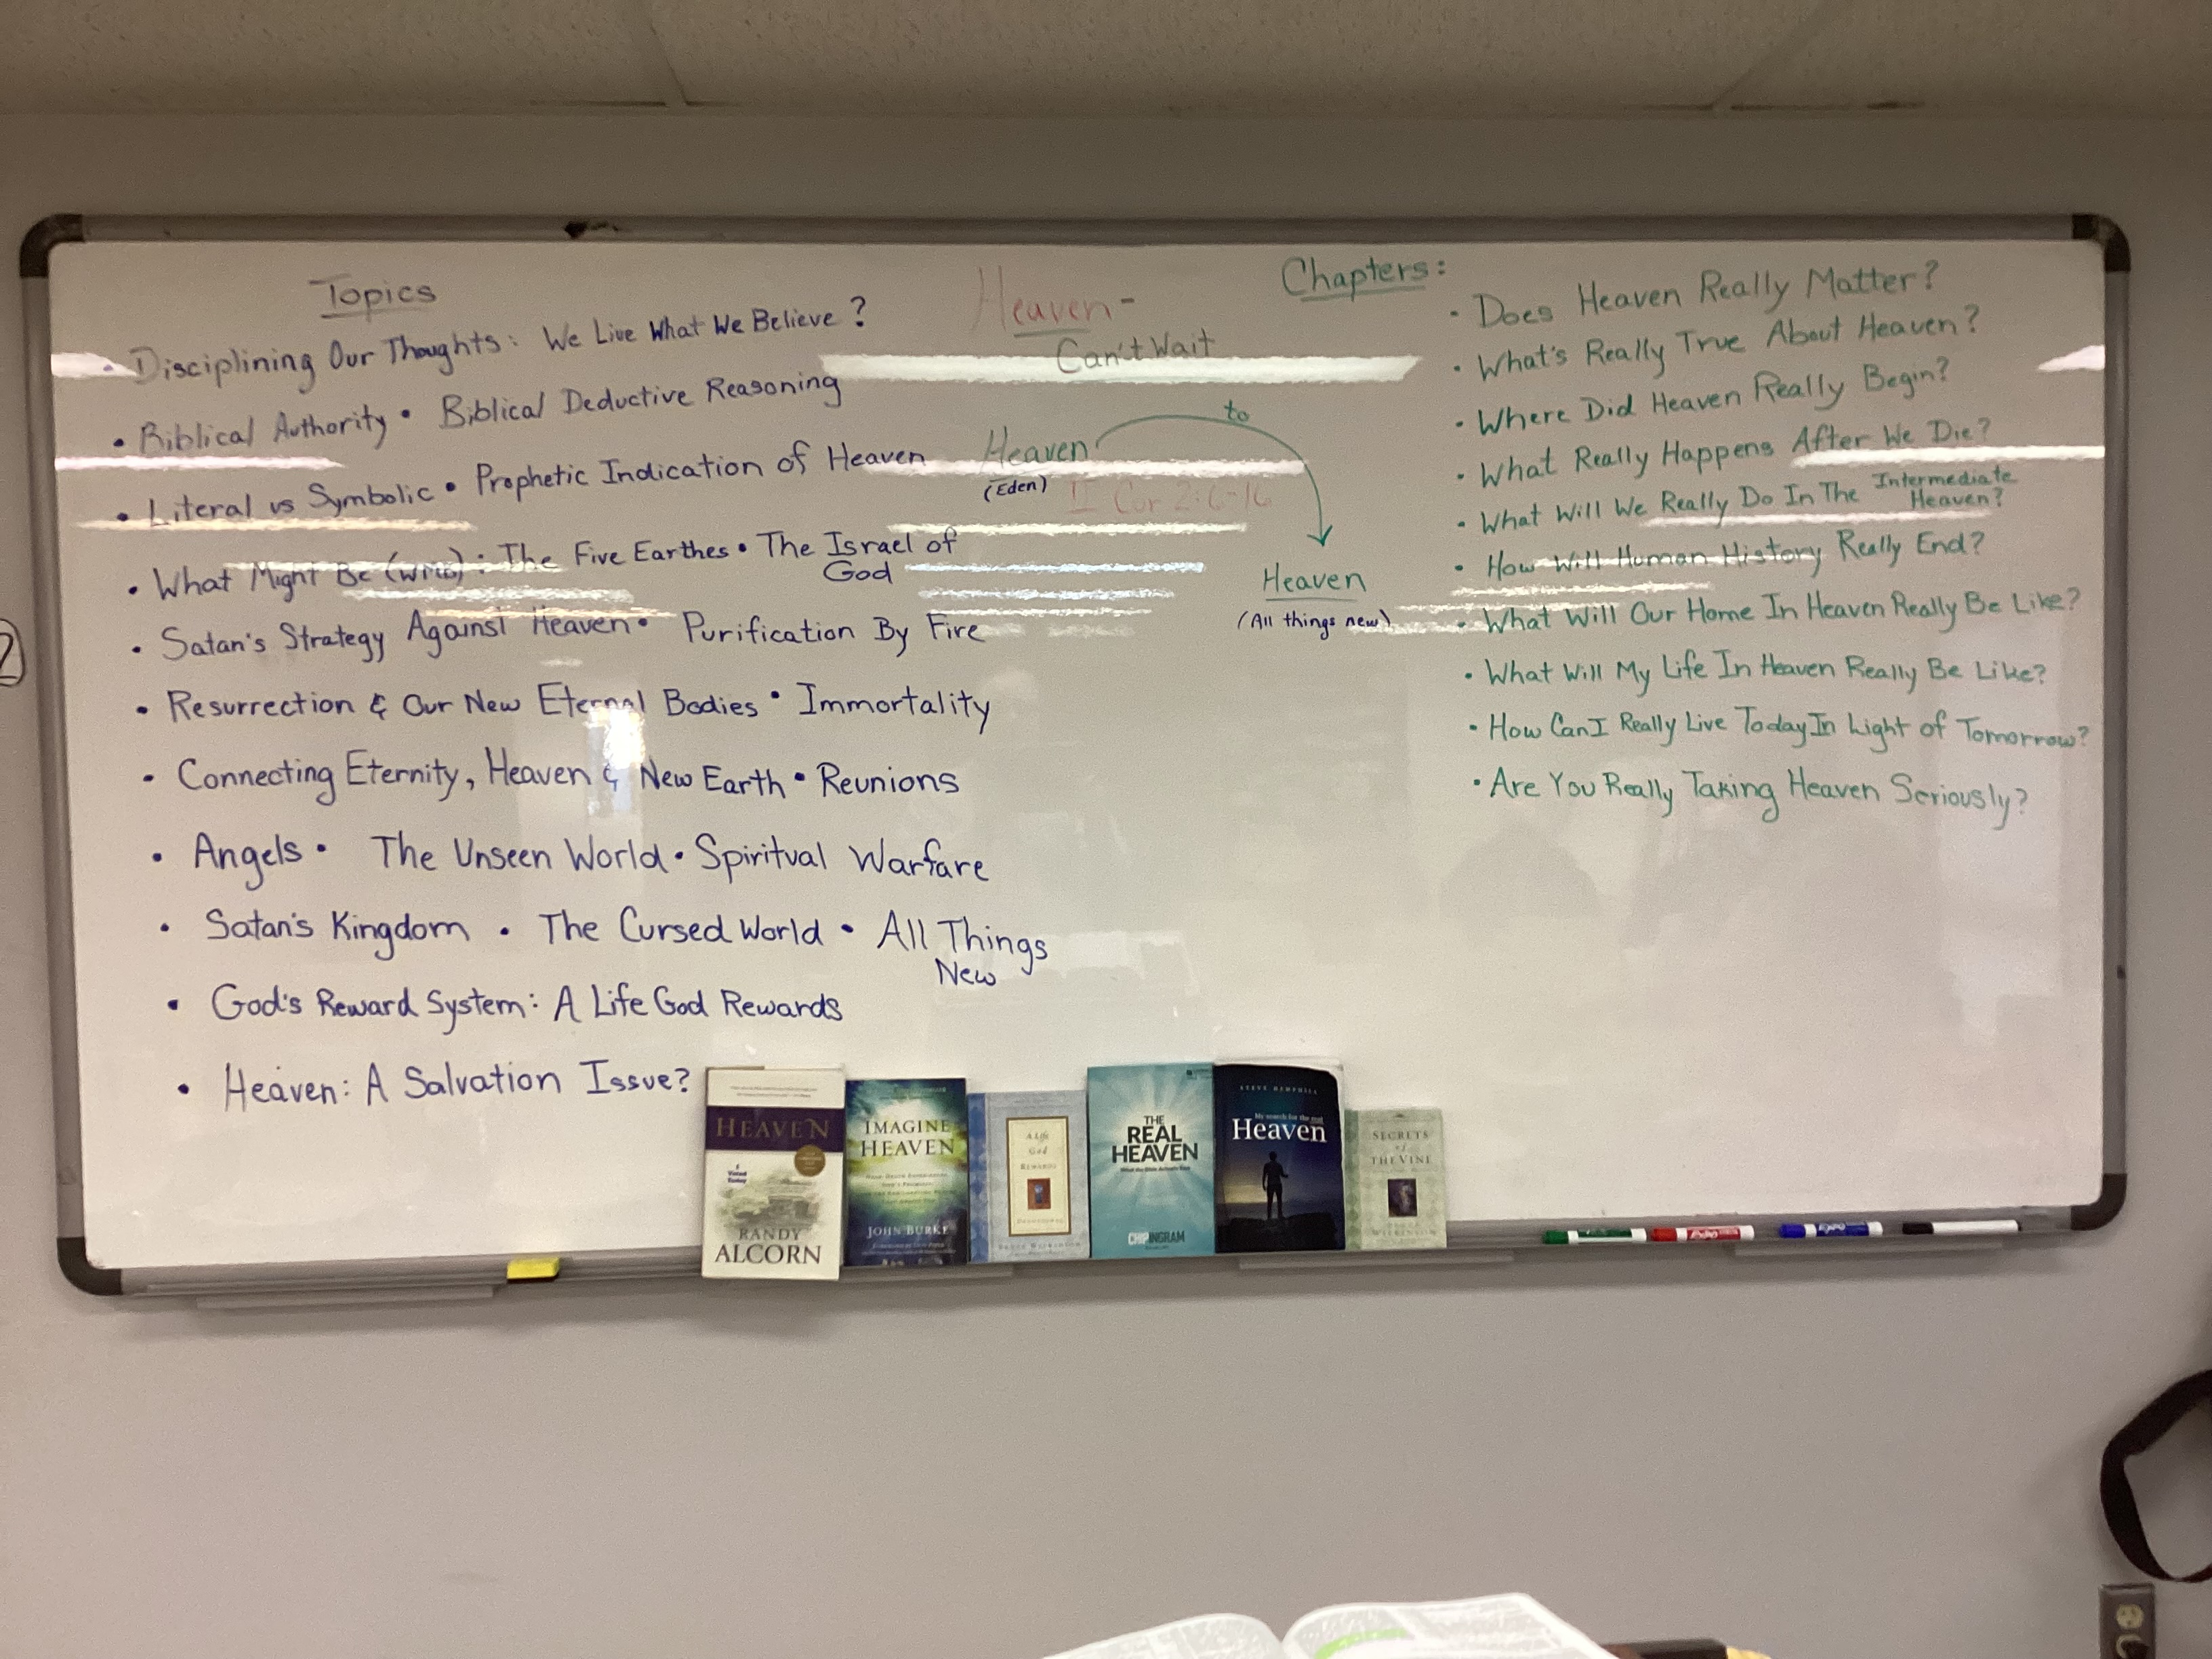 Topics
• Disciplining Our Thoughts: We Live What We Believe?
• Biblical Authority • Biblical Deductive Reasoning
• Literal vs Symbolic • Prophetic Indication of Heaven
• What Might Be (WMB): The Five Earthes • The Israel of
God
• Satan's Strategy Against Heaven • Purification By Fire
• Resurrection & Our New Eternal Bodies • Immortality
• Connecting Eternity, Heaven & New Earth • Reunions
• Angels • The Unseen World • Spiritual Warfare
• Satan's Kingdom • The Cursed World • All Things
New
• God's Reward System: A Life God Rewards
• Heaven: A Salvation Issue?
Heaven-
Can't Wait
to
Heaven
(Eden)
II Cor 2:6-16
Heaven
(All things new)
Chapters:
• Does Heaven Really Matter?
• What's Really True About Heaven?
• Where Did Heaven Really Begin?
• What Really Happens After We Die?
• What Will We Really Do In The Intermediate
Heaven?
• How Will Human History Really End?
• What Will Our Home In Heaven Really Be Like?
• What Will My Life In Heaven Really Be Like?
• How Can I Really Live Today In Light of Tomorrow?
• Are You Really Taking Heaven Seriously?
HEAVEN
I Voted Today
RANDY
ALCORN
IMAGINE
HEAVEN
JOHN BURKE
A Life
God
REWARDS
DEVOTIONAL
BRUCE WILKINSON
THE
REAL
HEAVEN
What the Bible Actually Says
CHIP INGRAM
STEVE HEMPHILL
My search for the real
Heaven
SECRETS
of
THE VINE
WILKINSON
EXPO
EXPO
2